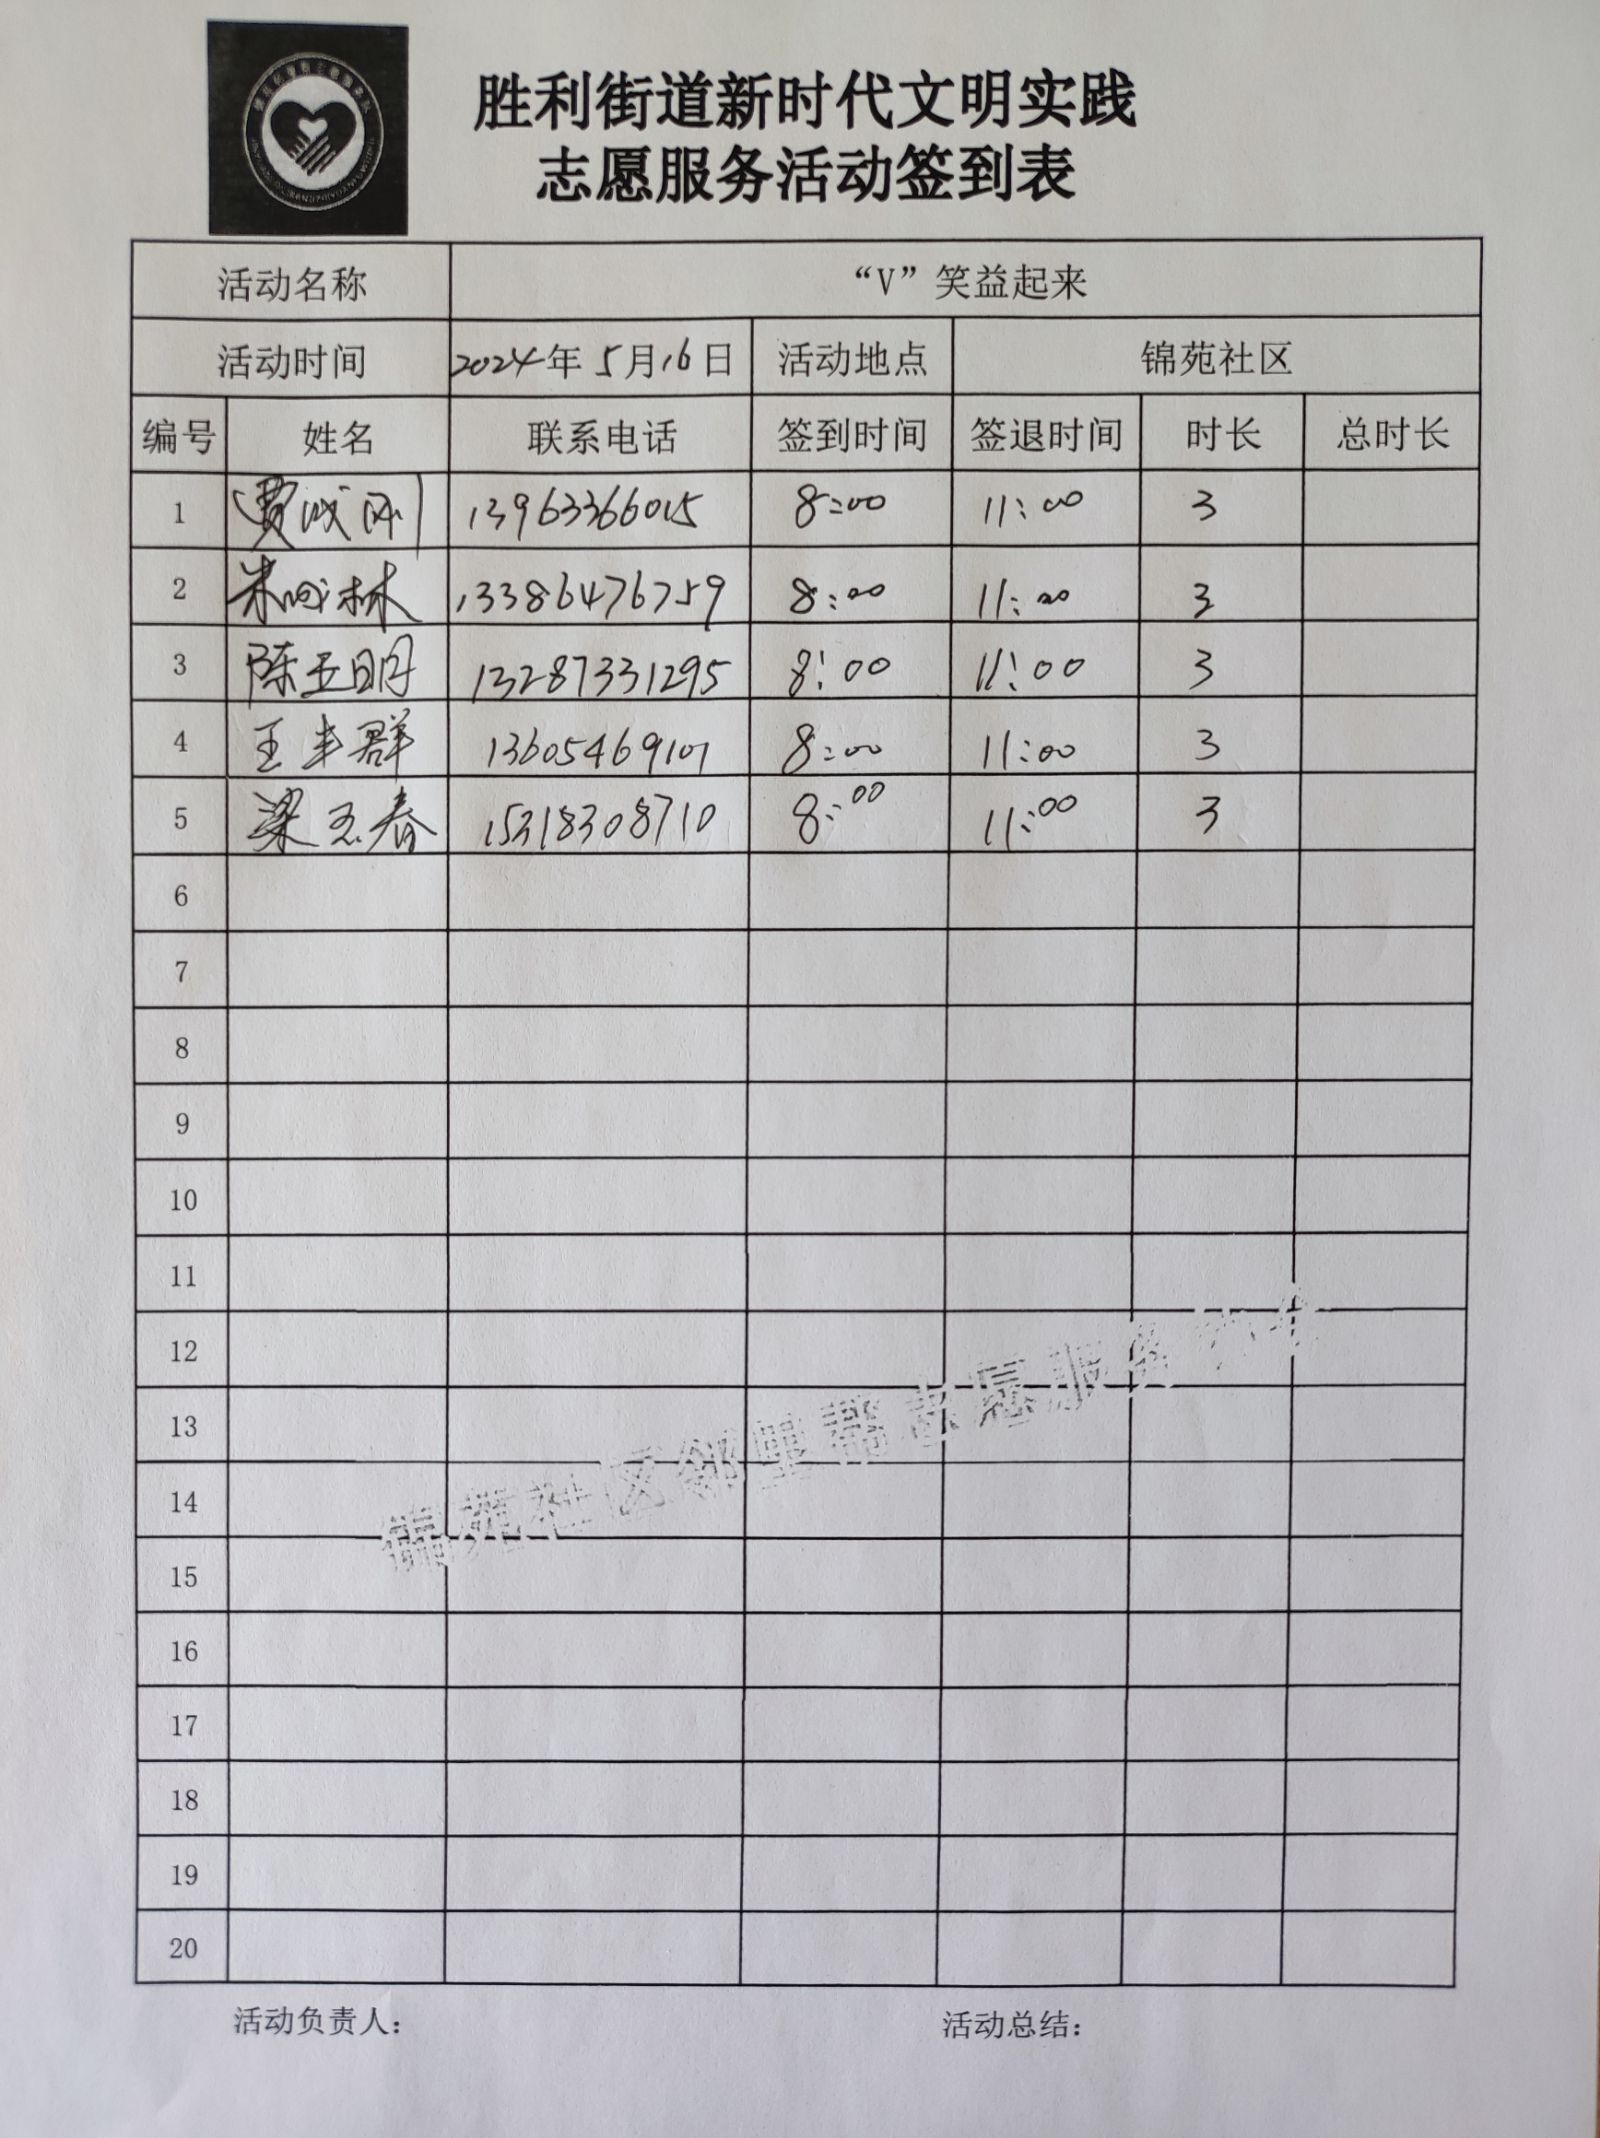 胜利街道新时代文明实践
志愿服务活动签到表
活动名称 “V”笑益起来
活动时间 2024年5月16日 活动地点 锦苑社区
编号 姓名 联系电话 签到时间 签退时间 时长 总时长
1 费成刚 13963366015 8:00 11:00 3
2 朱成林 13386476759 8:00 11:00 3
3 陈玉明 13287331295 8:00 11:00 3
4 王丰群 13605469101 8:00 11:00 3
5 梁玉春 15318308710 8:00 11:00 3
6
7
8
9
10
11
12
13
14
15
16
17
18
19
20
锦苑社区邻里帮志愿服务
活动负责人: 活动总结: